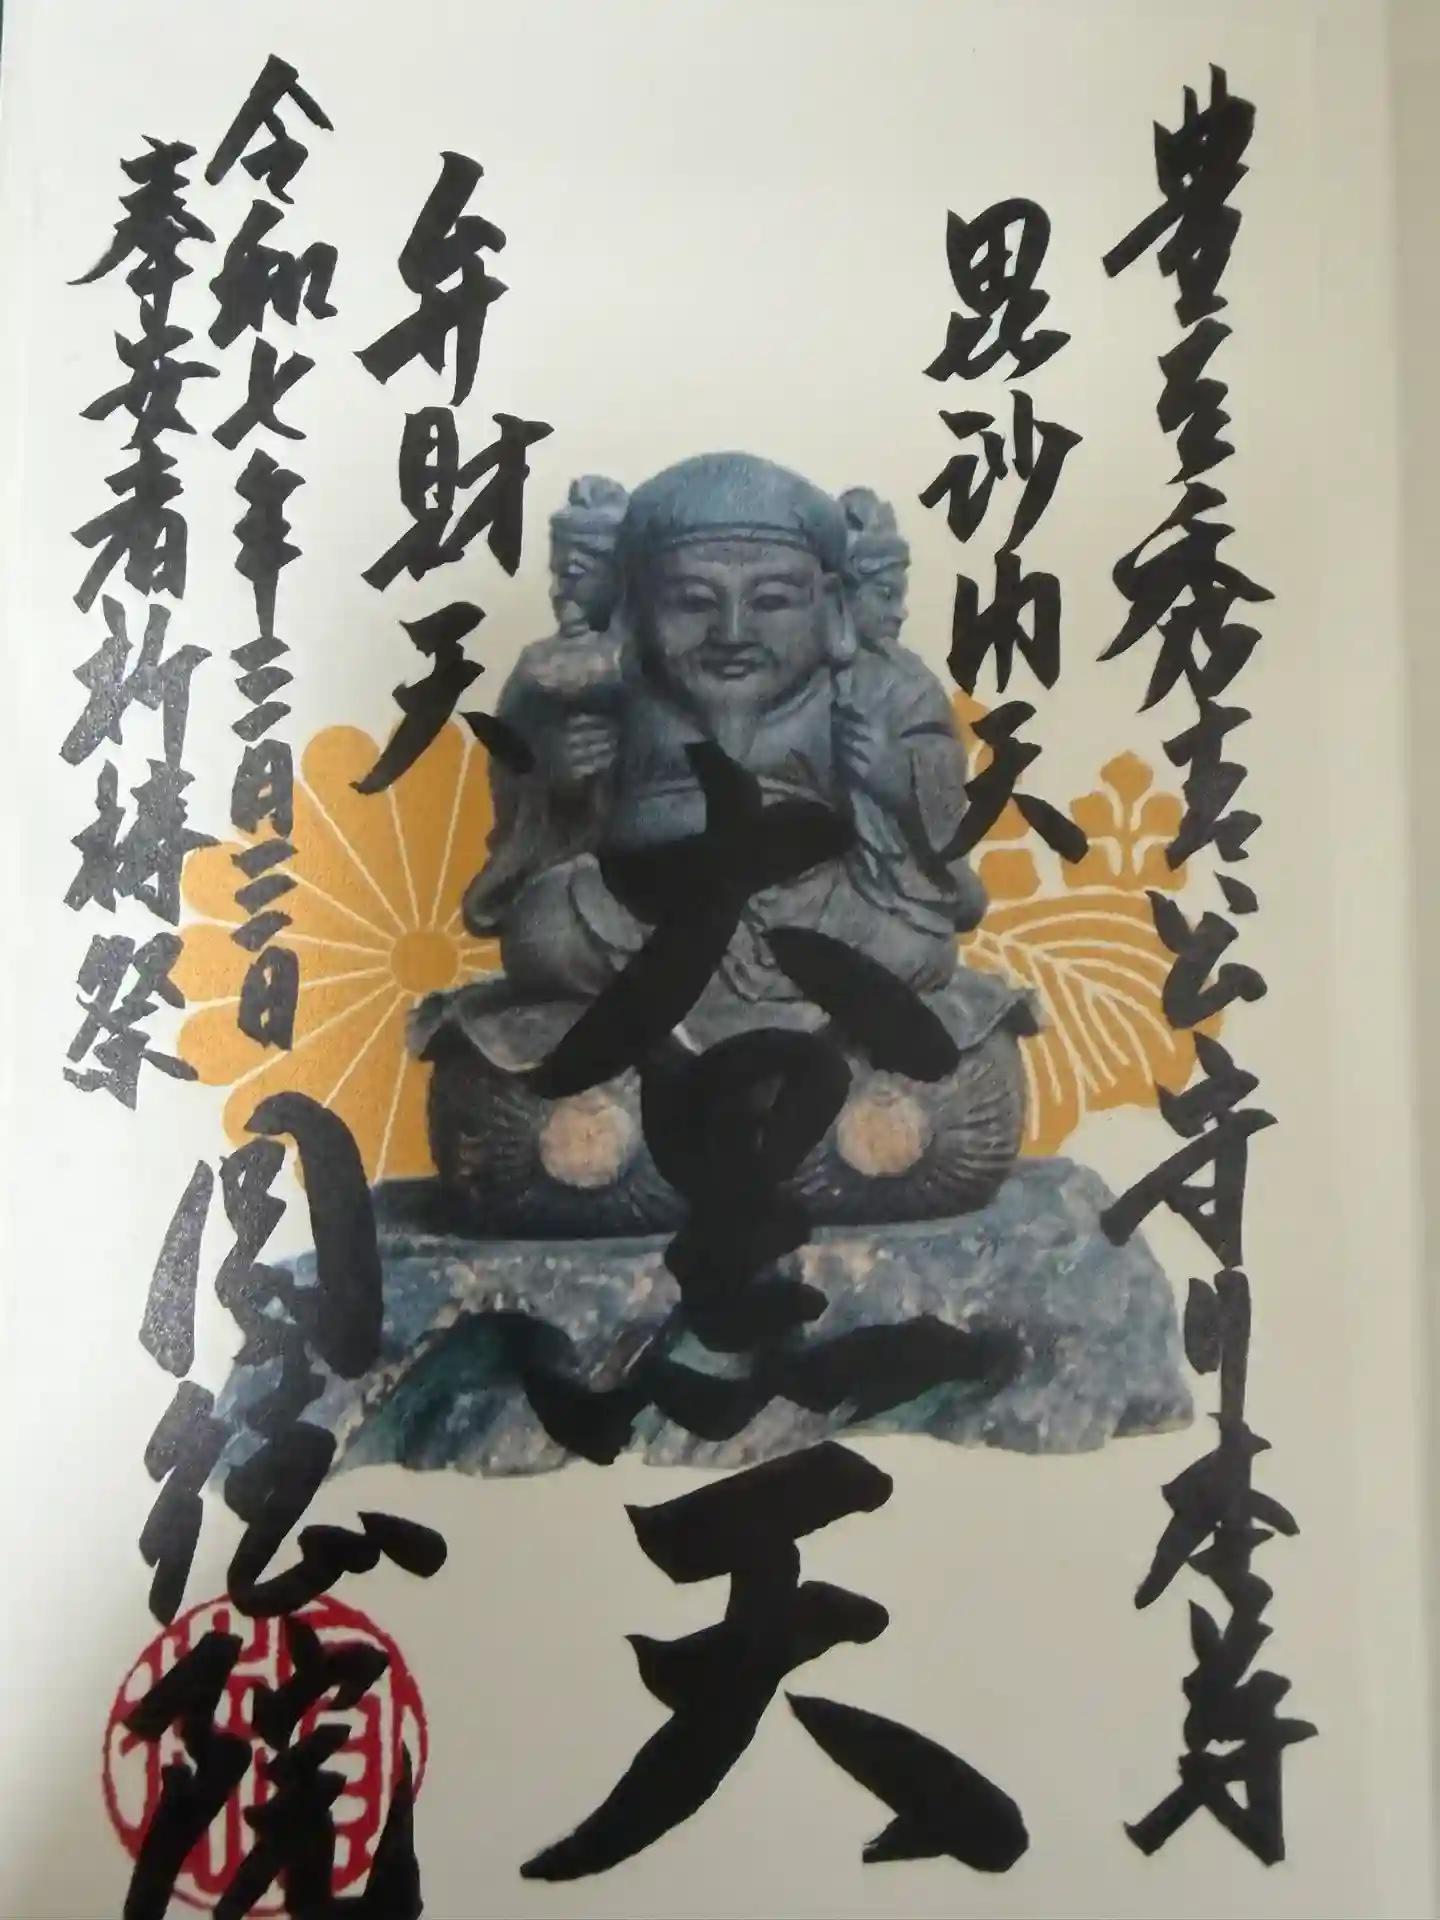 豊臣秀吉公守り本尊
毘沙門天
大黒天
弁財天
令和七年三月二二日
奉安者祈祷祭
圓徳院